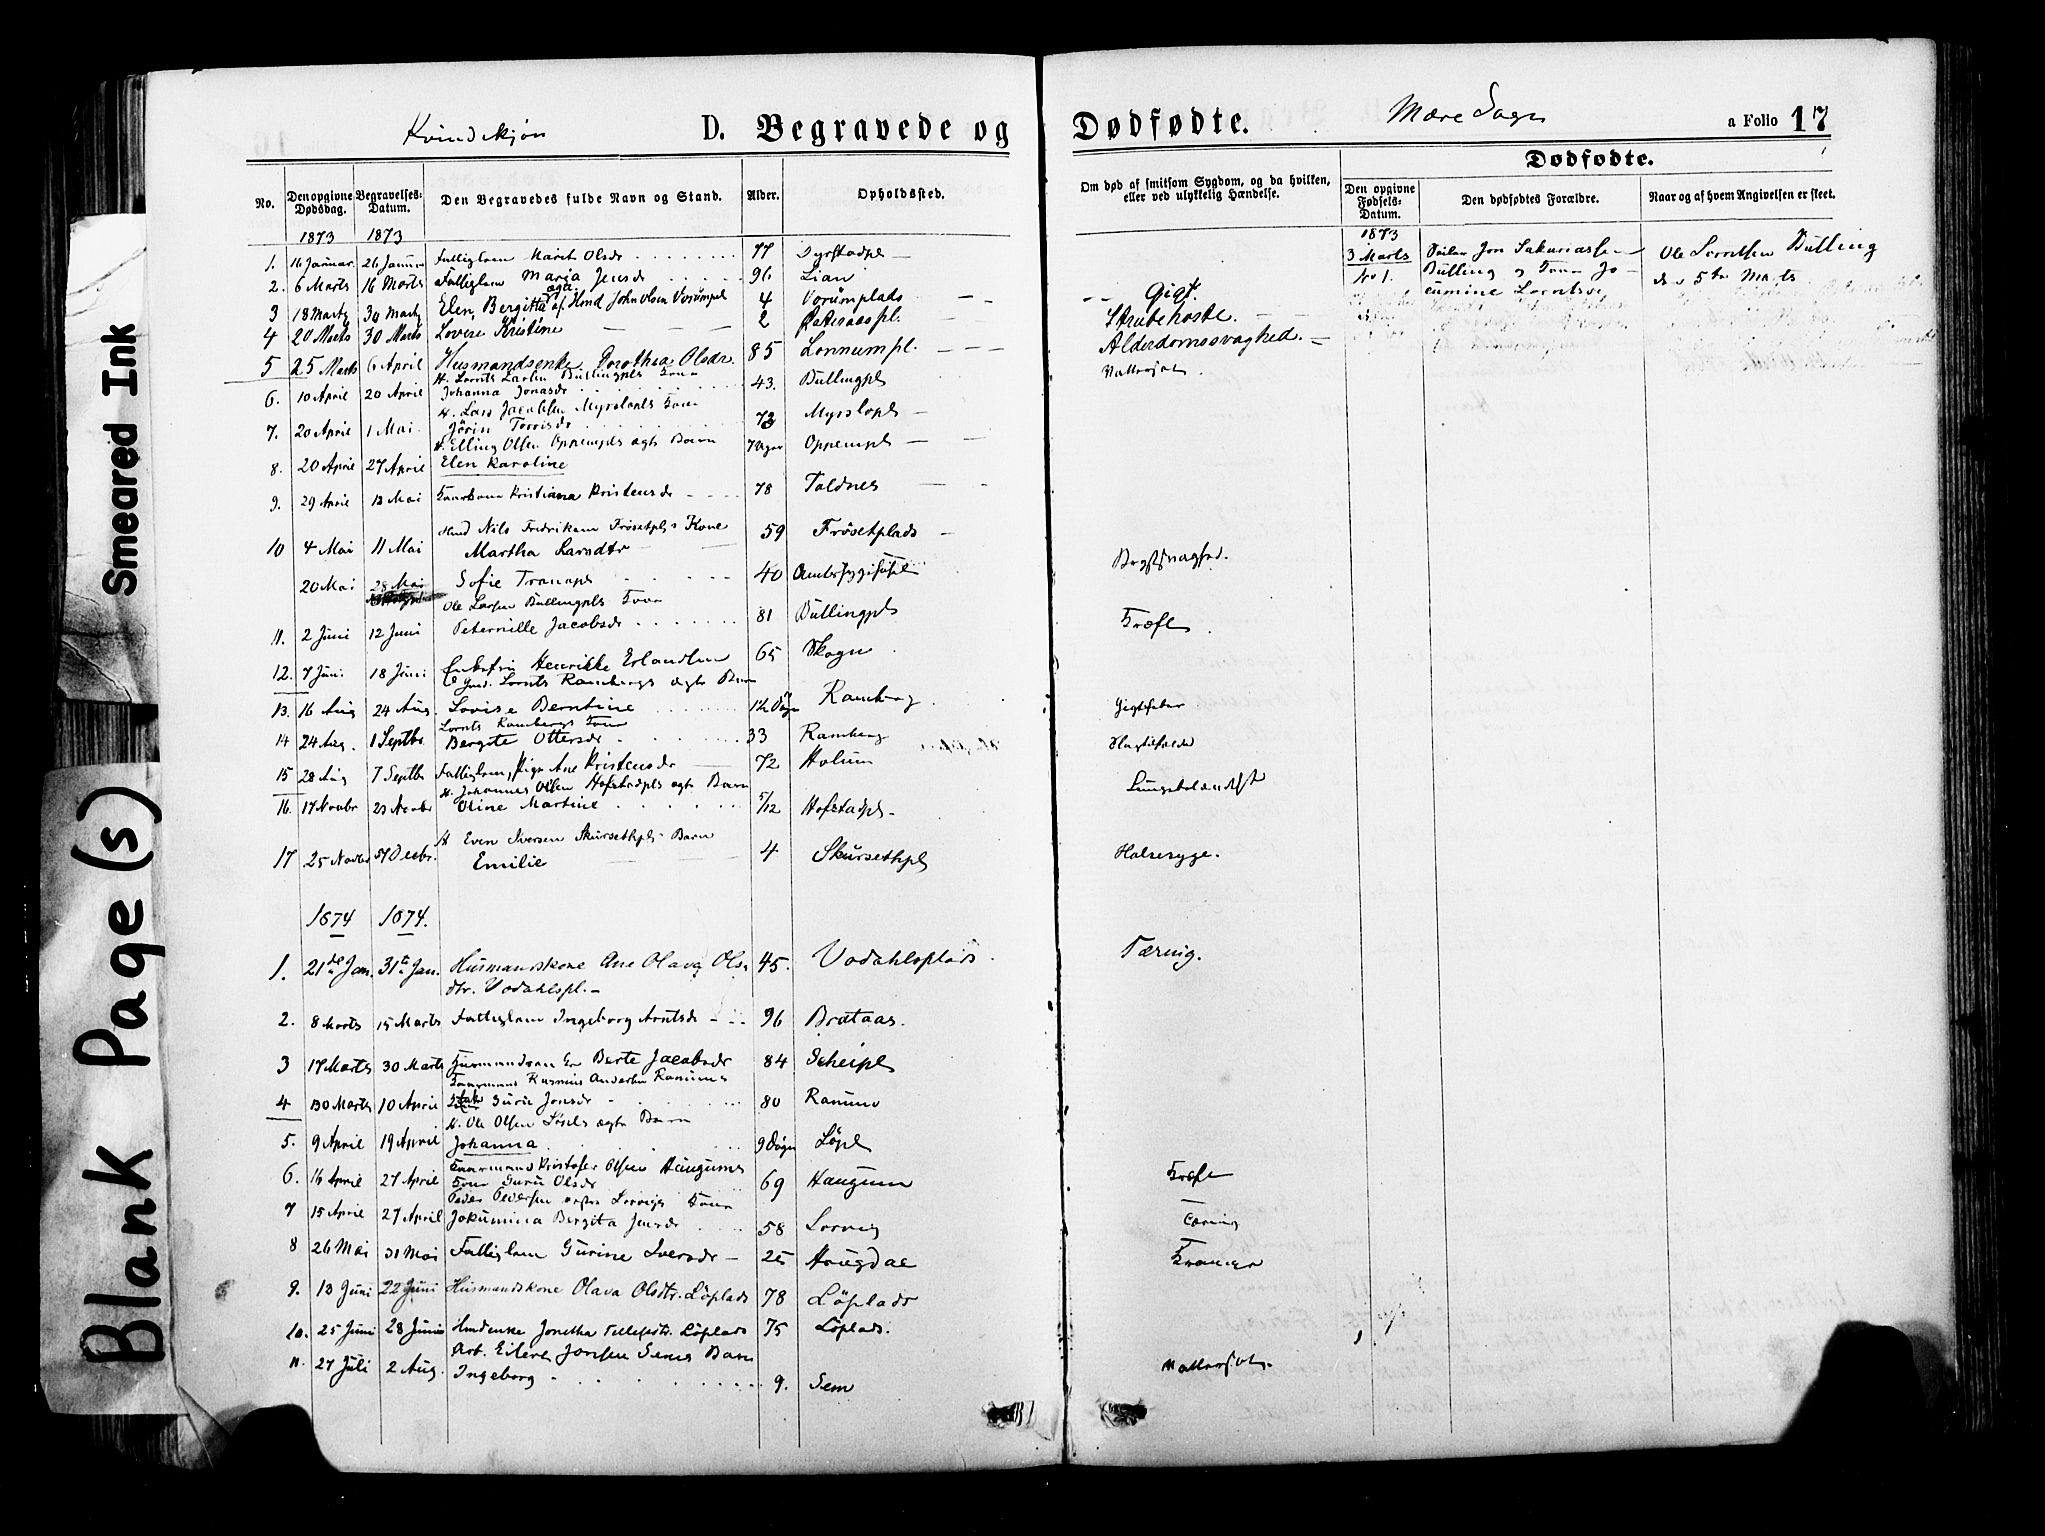 Smeared Ink
Blank Page(s)
Kvindekjøn D. Begravede og Dødfødte. Mære Sogn a Folio 17
Dødfødte.
No. Den opgivne Dødsdag. Begravelses-Datum. Den Begravedes fulde Navn og Stand. Alder. Opholdssted. Om død af smitsom Sygdom, og da hvilken, eller ved ulykkelig Hændelse. Den opgivne Fødsels-Datum. Den dødfødtes Forældre. Naar og af hvem Angivelsen er skeet.
1873 1873 1873
1. 16 Januar 26 Januar Fattiglem Marit Olsdr 77 Dyrstadpl 3 Marts Jon Sakariassen Ole Lorntsen Bulling
2. 6 Marts 16 Marts Fattiglem Maria Jensdr 96 Lian No 1. Bulling og Kone Jo- den 5te Marts
cumine Lorntsdr
3 18 Marts 30 Marts Elen Bergitta af Hmd John Olsen Vorumpl 4 Vorumplads Gigt.
4 20 Marts 30 Marts Lovise Kristine 2 Strubehoste.
5 25 Marts 6 April Husmandsenke Dorothea Olsdr. 85 Lonnumpl. Alderdomssvaghed.
H. Lornts Larsen Bullingpls Kone
6. 10 April 20 April Johanna Jonasdr 43. Bullingpl
H. Lars Jacobsen Myrslopls Kone
7. 20 April 1 Mai Jörin Torrisdr 73 Myrslopl
H. Elling Olsen Oppempls ægte Barn
8. 20 April 27 April Elen Karoline Oppempl
9. 29 April 13 Mai Kristiana Kristensdr 78 Toldnes
Hmd Nils Fredriksen Frösetpls Kone
10 4 Mai 11 Mai Martha Larsdtr 59 Frösetplads
20 Mai 28 Mai Sofie Tranapl 40 Brystsvaghed.
Ole Larsen Bullingpls Kone
11. 2 Juni 12 Juni Peternille Jacobsdr 81 Bullingpl Kræft
12. 7 Juni 18 Juni Henrikke Erlandsen 65 Skogn
Lornts Rambergs ægte Barn
13. 16 Aug 24 Aug. Lovise Berntine Ramberg Gigtfeber
Lornts Rambergs Kone
14 24 Aug. 1 Septbr Bergite Ottersdr 33 Ramberg
15 28 Aug 7 Septbr Fattiglem, Pige Ane Kristensdr 72 Holum
H. Johannes Olsen Hofstadpls ægte Barn
16. 17 Novbr 23 Novbr Oline Martine 5/12 Hofstadpl. Lungebetændelse
H Even Iversen Skursethpls Barn
17 25 Novbr Decbr. Emilie 4 Skursethpl Halsesyge.
1874 1874.
1. 21de Jan. 31te Jan. Husmandskone Ane Olava Ols-
dtr. Vodahlspl. 45. Vodahlsplads. Tæring.
2. 8 Marts 15 Marts Fattiglem Ingeborg Arntsdr 96 Brataas.
3 17 Marts 30 Marts Berte Jacobsdr 84 Scheipl
Gaarmand Rasmus Andersen Ranums
4 30 Marts 10 April Guru Jonsdr 80 Ranum
H. Ole Olsen ægte Barn
5. 9 April 19 April Johanna 9 Døgn Löpl
Gaarmand Kristofer Olsen Haugums
6. 16 April 27 April Kone Guru Olsdr 69 Haugum Kræft
Peder Pedersen Lorvigs Kone
7 15 April 27 April Jokumina Bergita Jensdr 58 Lorvig Tæring
8 26 Mai 31 Mai Fattiglem Gurine Iversdr 25 Haugdal
9. 13 Juni 22 Juni Husmandskone Olava Olsdtr. Löplads 78 Löplads
10. 25 Juni 28 Juni Hmdenke Jonetha Tellefsdtr. Löplads 75 Löplads.
Arb. Eilert Jonsen Sems Barn
11. 27 Juli 2 Aug. Ingeborg 9. Sem